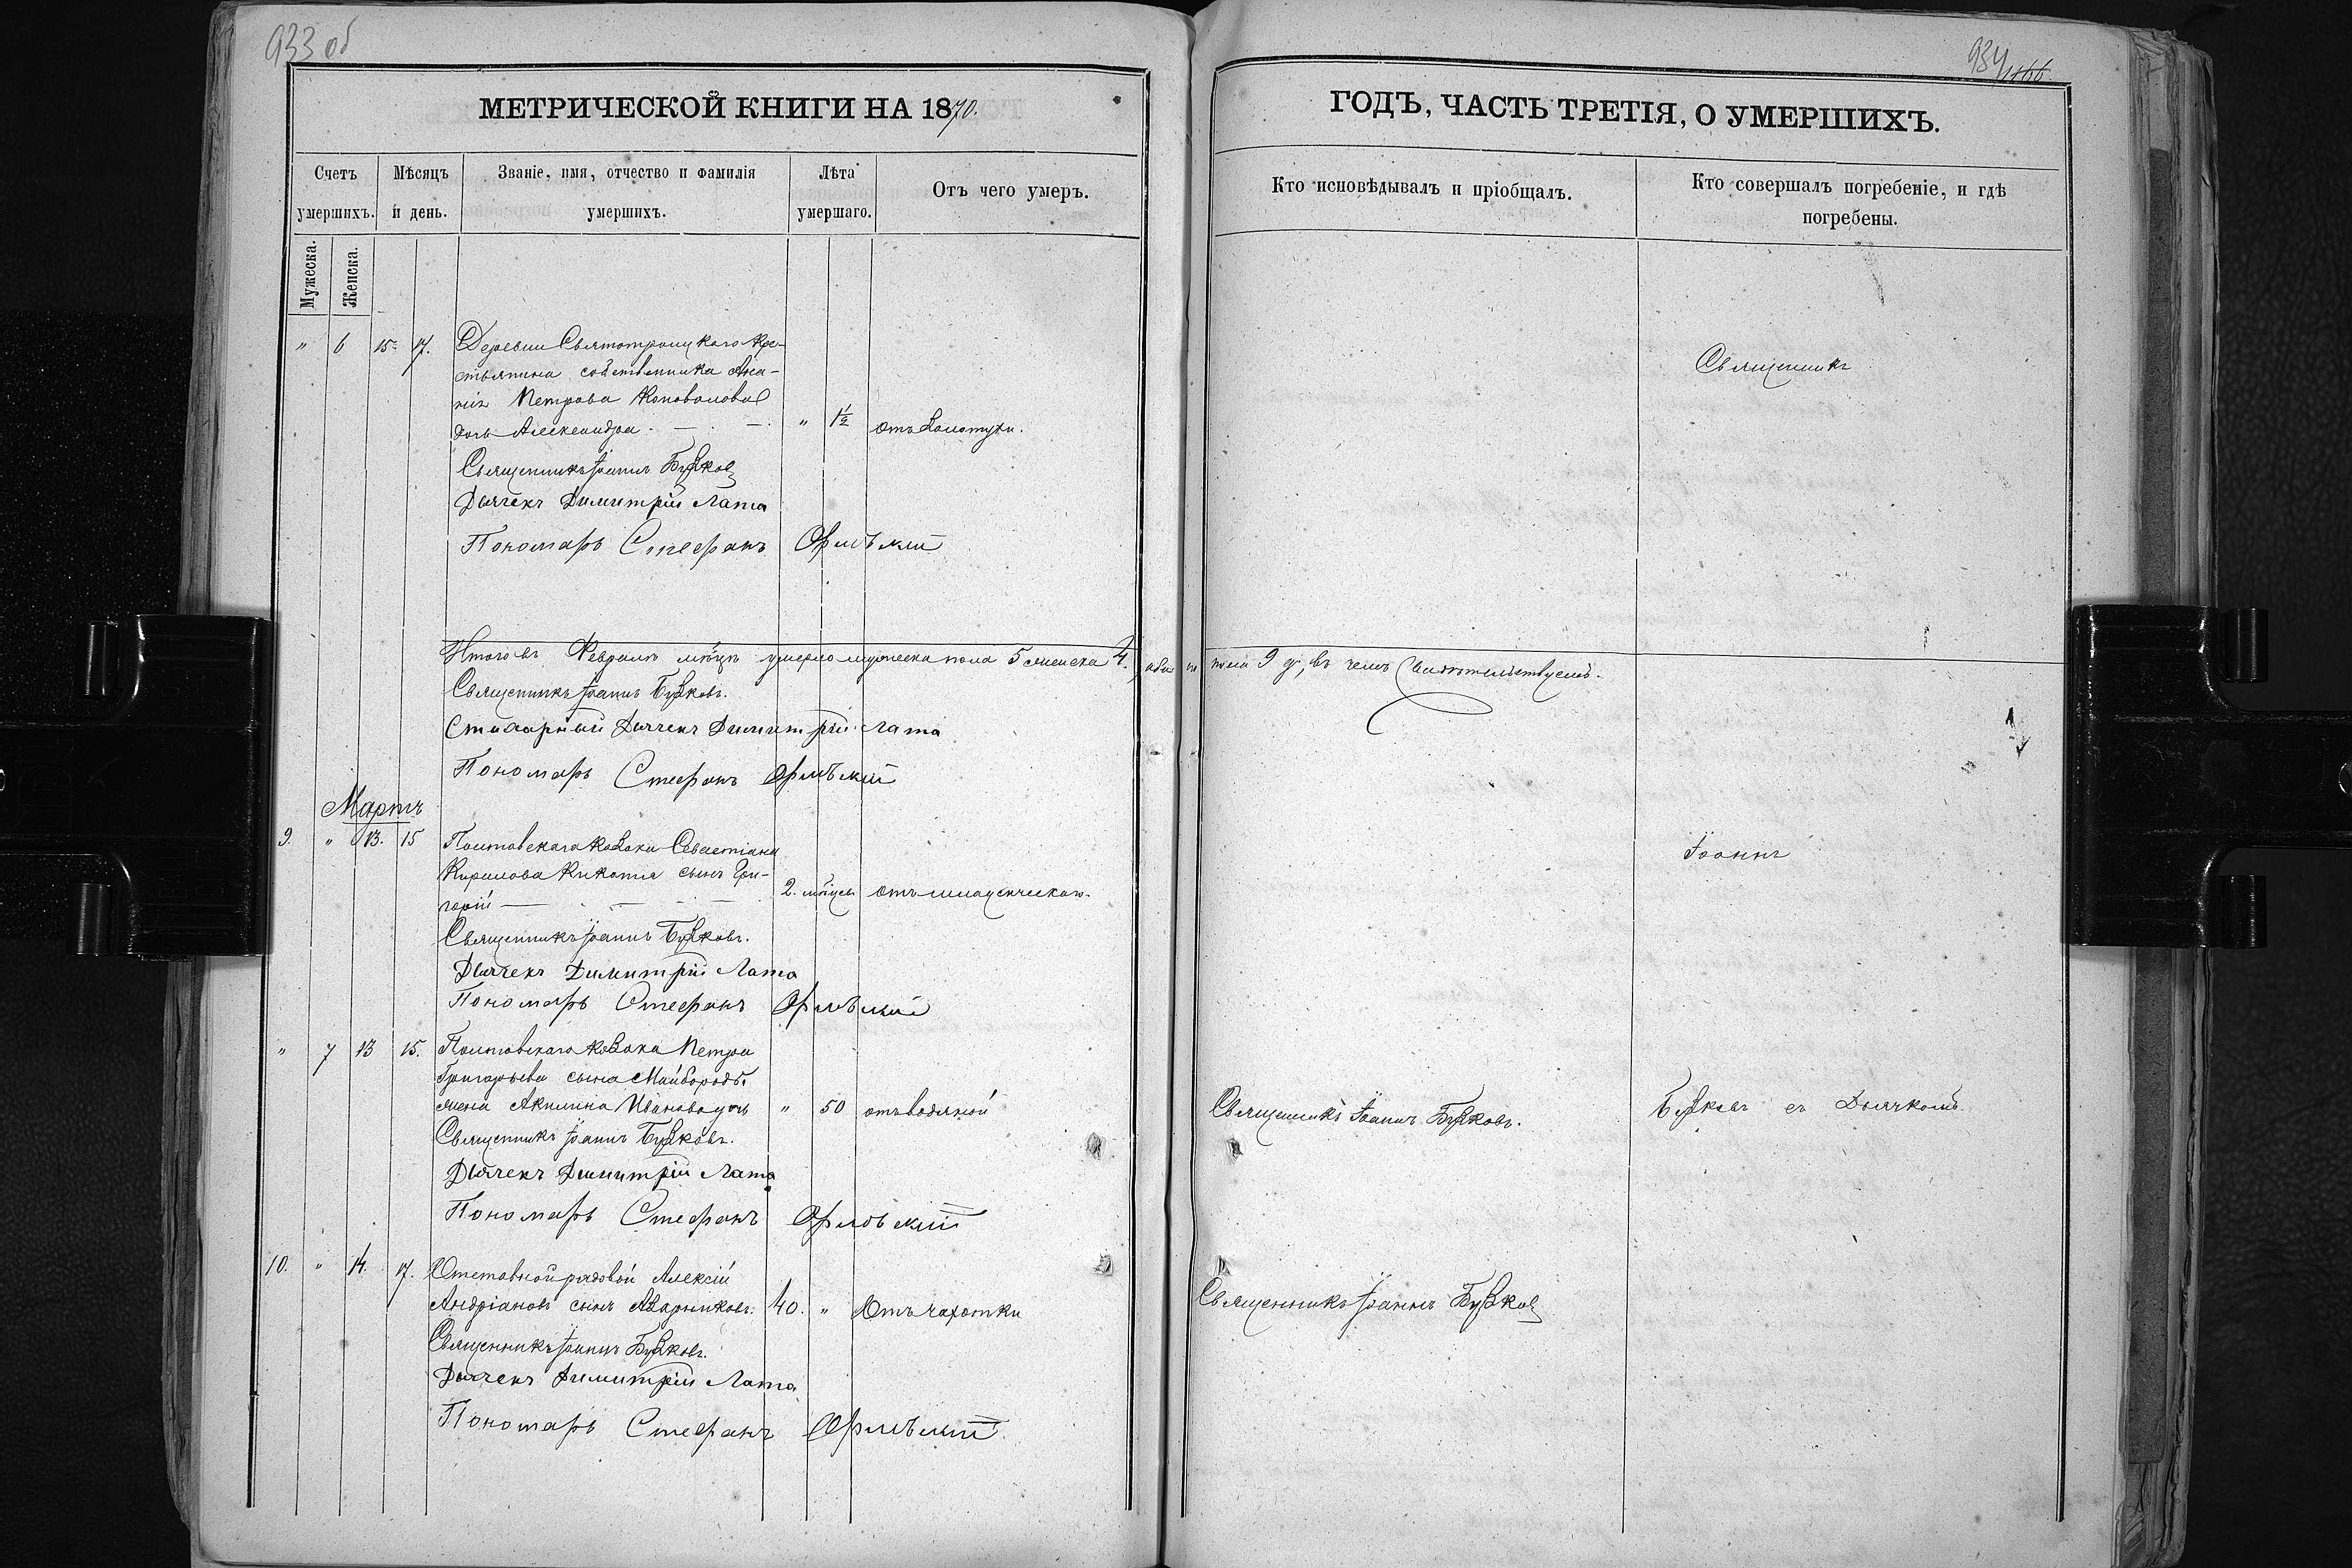 933 об
934
1866
МЕТРИЧЕСКОЙ КНИГИ НА 1870.
ГОДЪ, ЧАСТЬ ТРЕТІЯ, О УМЕРШИХЪ.
Счетъ умершихъ.
Мѣсяцъ и день.
Званіе, имя, отчество и фамилія умершихъ.
Лѣта умершаго.
Отъ чего умеръ.
Кто исповѣдывалъ и пріобщалъ.
Кто совершалъ погребеніе, и гдѣ погребены.
Мужеска.
Женска.
" 6 15. 17. Деревни Святотроицкаго Кре-
стьянина собственника Ана-
нія Петрова Коновалова
дочь Александра. " 1½ отъ золотухи.
Священникъ
Священникъ Іоаннъ Бузков
Дьячекъ Димитрій Лата
Пономарь Стефанъ Орловскій
Итого въ Февралѣ мѣсяцѣ умерло мужеска пола 5 женска 4. обоего пола 9 д, въ чемъ свидѣтельствуемъ.
Священникъ Іоаннъ Бузковъ.
Стихарный Дьячекъ Димитрій Лата
Пономарь Стефанъ Орловскій
Мартъ
9. " 13. 15 Полтавскаго козака Севастіана
Кирилова сынъ Гри-
горій 2. мѣсяц. отъ младенческаго.
Іоаннъ
Священникъ Іоаннъ Бузковъ.
Дьячекъ Димитрій Лата
Пономарь Стефанъ Орловскій
" 7 13 15. Полтавскаго козака Петра
Григорьева сына Майбороды
жена Акилина Иванова дочь " 50 отъ водяной
Священникъ Іоаннъ Бузковъ.
Бузковъ съ Дьячкомъ
Священникъ Іоаннъ Бузковъ.
Дьячекъ Димитрій Лата
Пономарь Стефанъ Орловскій
10. " 14. 17. Отставной рядовой Алексій
Андріановъ сынъ Азарниковъ. 40. " Отъ чахотки
Священникъ Іоаннъ Бузков
Священникъ Іоаннъ Бузковъ.
Дьячекъ Димитрій Лата
Пономарь Стефанъ Орловскій